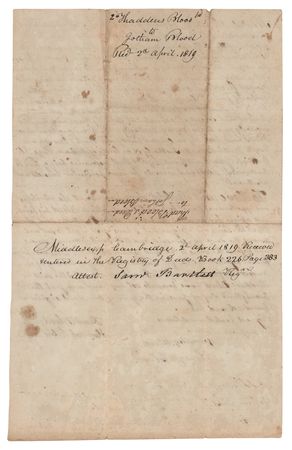 2d Thaddeus Blood
to
Jotham Blood
Recd 2d April. 1819
Thads Blood's Deed
to
Jotham Blood
Middlesex ss Cambridge 2d April 1819 Received
entered in the Registry of Deeds. Book 226 Page 383
Attest. Saml Bartlett Regr